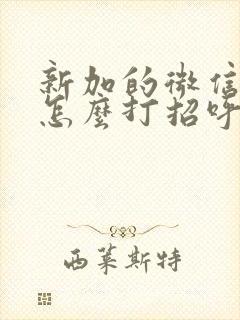 新加的微信
怎麼打招呼
西萊斯特